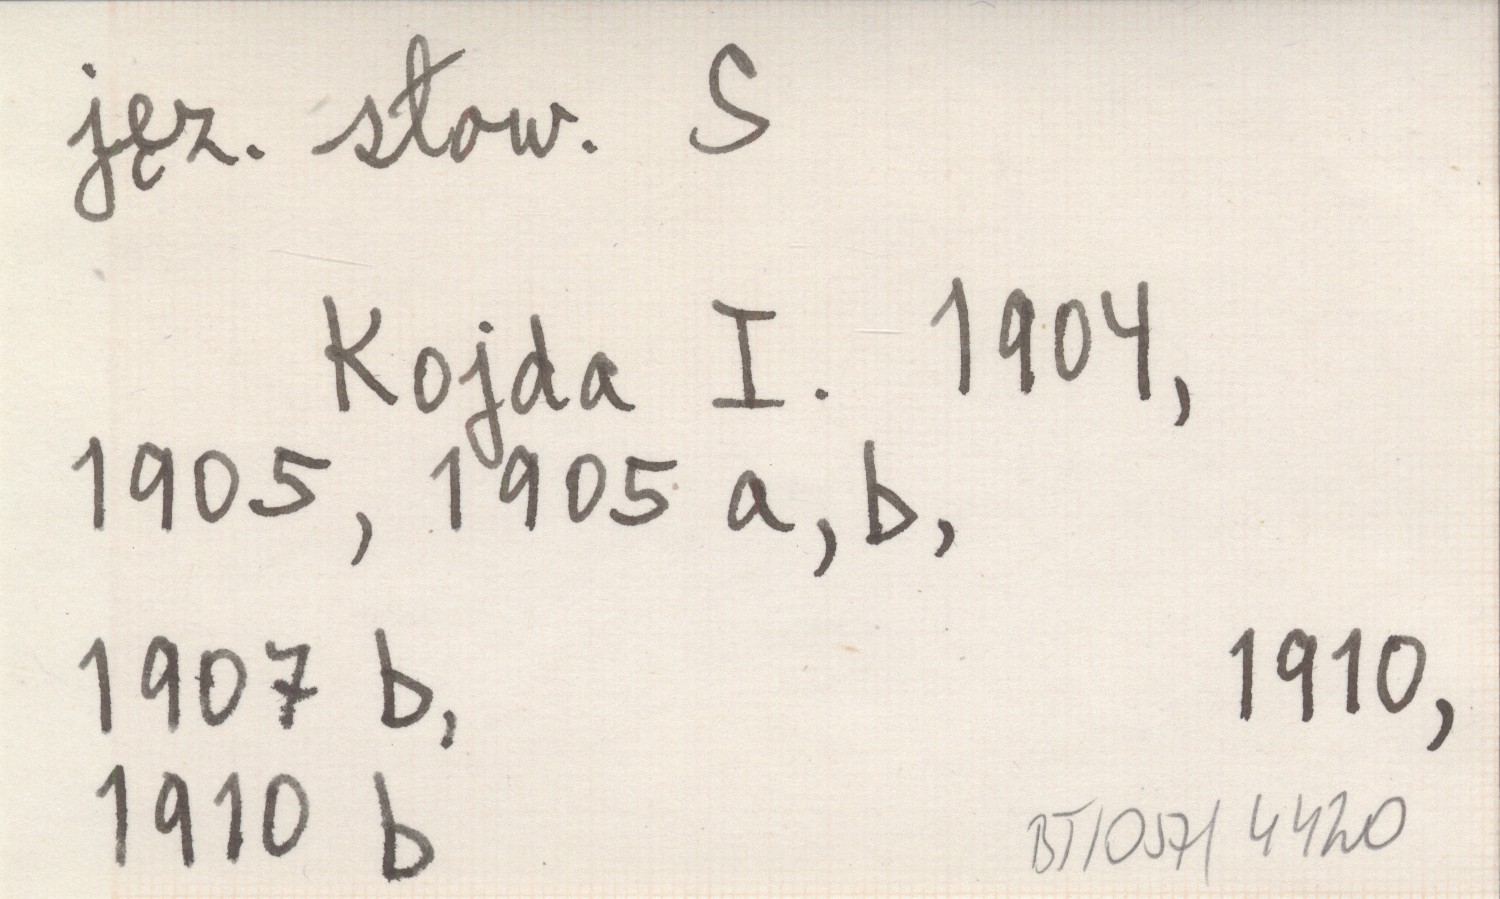 jęz. słow. S
Kojda I. 1904,
1905, 1905 a, b,
1907 b, 1910,
1910 b
BT/057/4420